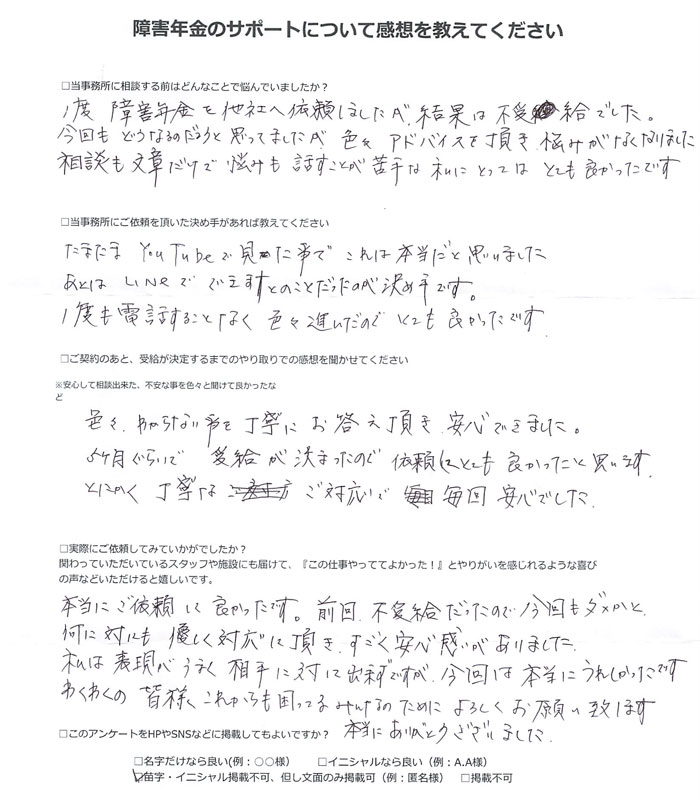 障害年金のサポートについて感想を教えてください
□当事務所に相談する前はどんなことで悩んでいましたか？
1度 障害年金を他社へ依頼しましたが、結果は不支給でした。
今回もどうなるのだろうと思ってましたが 色々アドバイスを頂き 悩みがなくなりました
相談も文章だけで 悩みも話すことが苦手な私にとっては とても良かったです
□当事務所にご依頼を頂いた決め手があれば教えてください
たまたま YouTubeで見た事で これは本当だと思いました
あとは LINEで できますとのことだったのが決め手です。
1度も電話することなく 色々進んだので とても良かったです
□ご契約のあと、受給が決定するまでのやり取りでの感想を聞かせてください
※安心して相談出来た、不安な事を色々と聞けて良かったな
ど
色々、わからない事を丁寧にお答え頂き 安心できました。
5ヶ月ぐらいで 受給が決まったので 依頼してとても良かったと思います
とにかく 丁寧な ご対応で 毎回 安心でした
□実際にご依頼してみていかがでしたか？
関わっていただいているスタッフや施設にも届けて、『この仕事やっててよかった！』とやりがいを感じれるような喜び
の声などいただけると嬉しいです。
本当にご依頼して良かったです。前回、不支給だったので 今回もダメかと
何に対しても 優しく対応して頂き、すごく安心感がありました
私は表現がうまく相手に対して出来ずですが、今回は本当にうれしかったです
わくわくの皆様、これからも困ってるみんなのために よろしくお願い致します
□このアンケートをHPやSNSなどに掲載してもよいですか？ 本当にありがとうございました
□名字だけなら良い(例：○○様） □イニシャルなら良い（例：A.A様）
☑苗字・イニシャル掲載不可、但し文面のみ掲載可（例：匿名様） □掲載不可